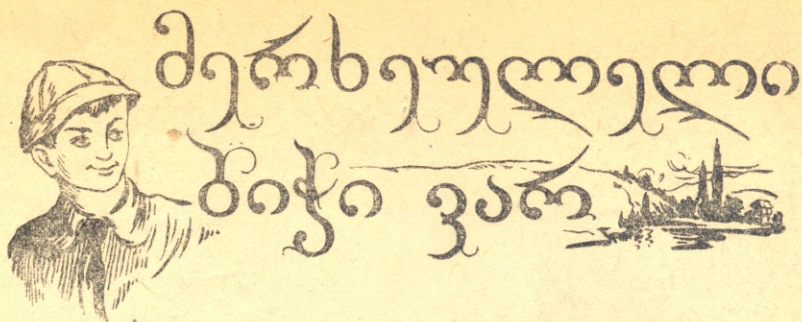 მერხეულელი
ბიჭი ვარ